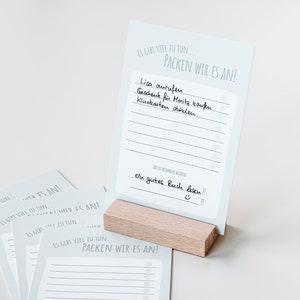 Es gibt viel zu tun...
Packen wir es an!
Lisa anrufen
Geschenk für Moritz kaufen
Kinokarten abholen
ein gutes Buch lesen
Packen wir es an!
Es gibt viel zu tun...
Packen wir es an!